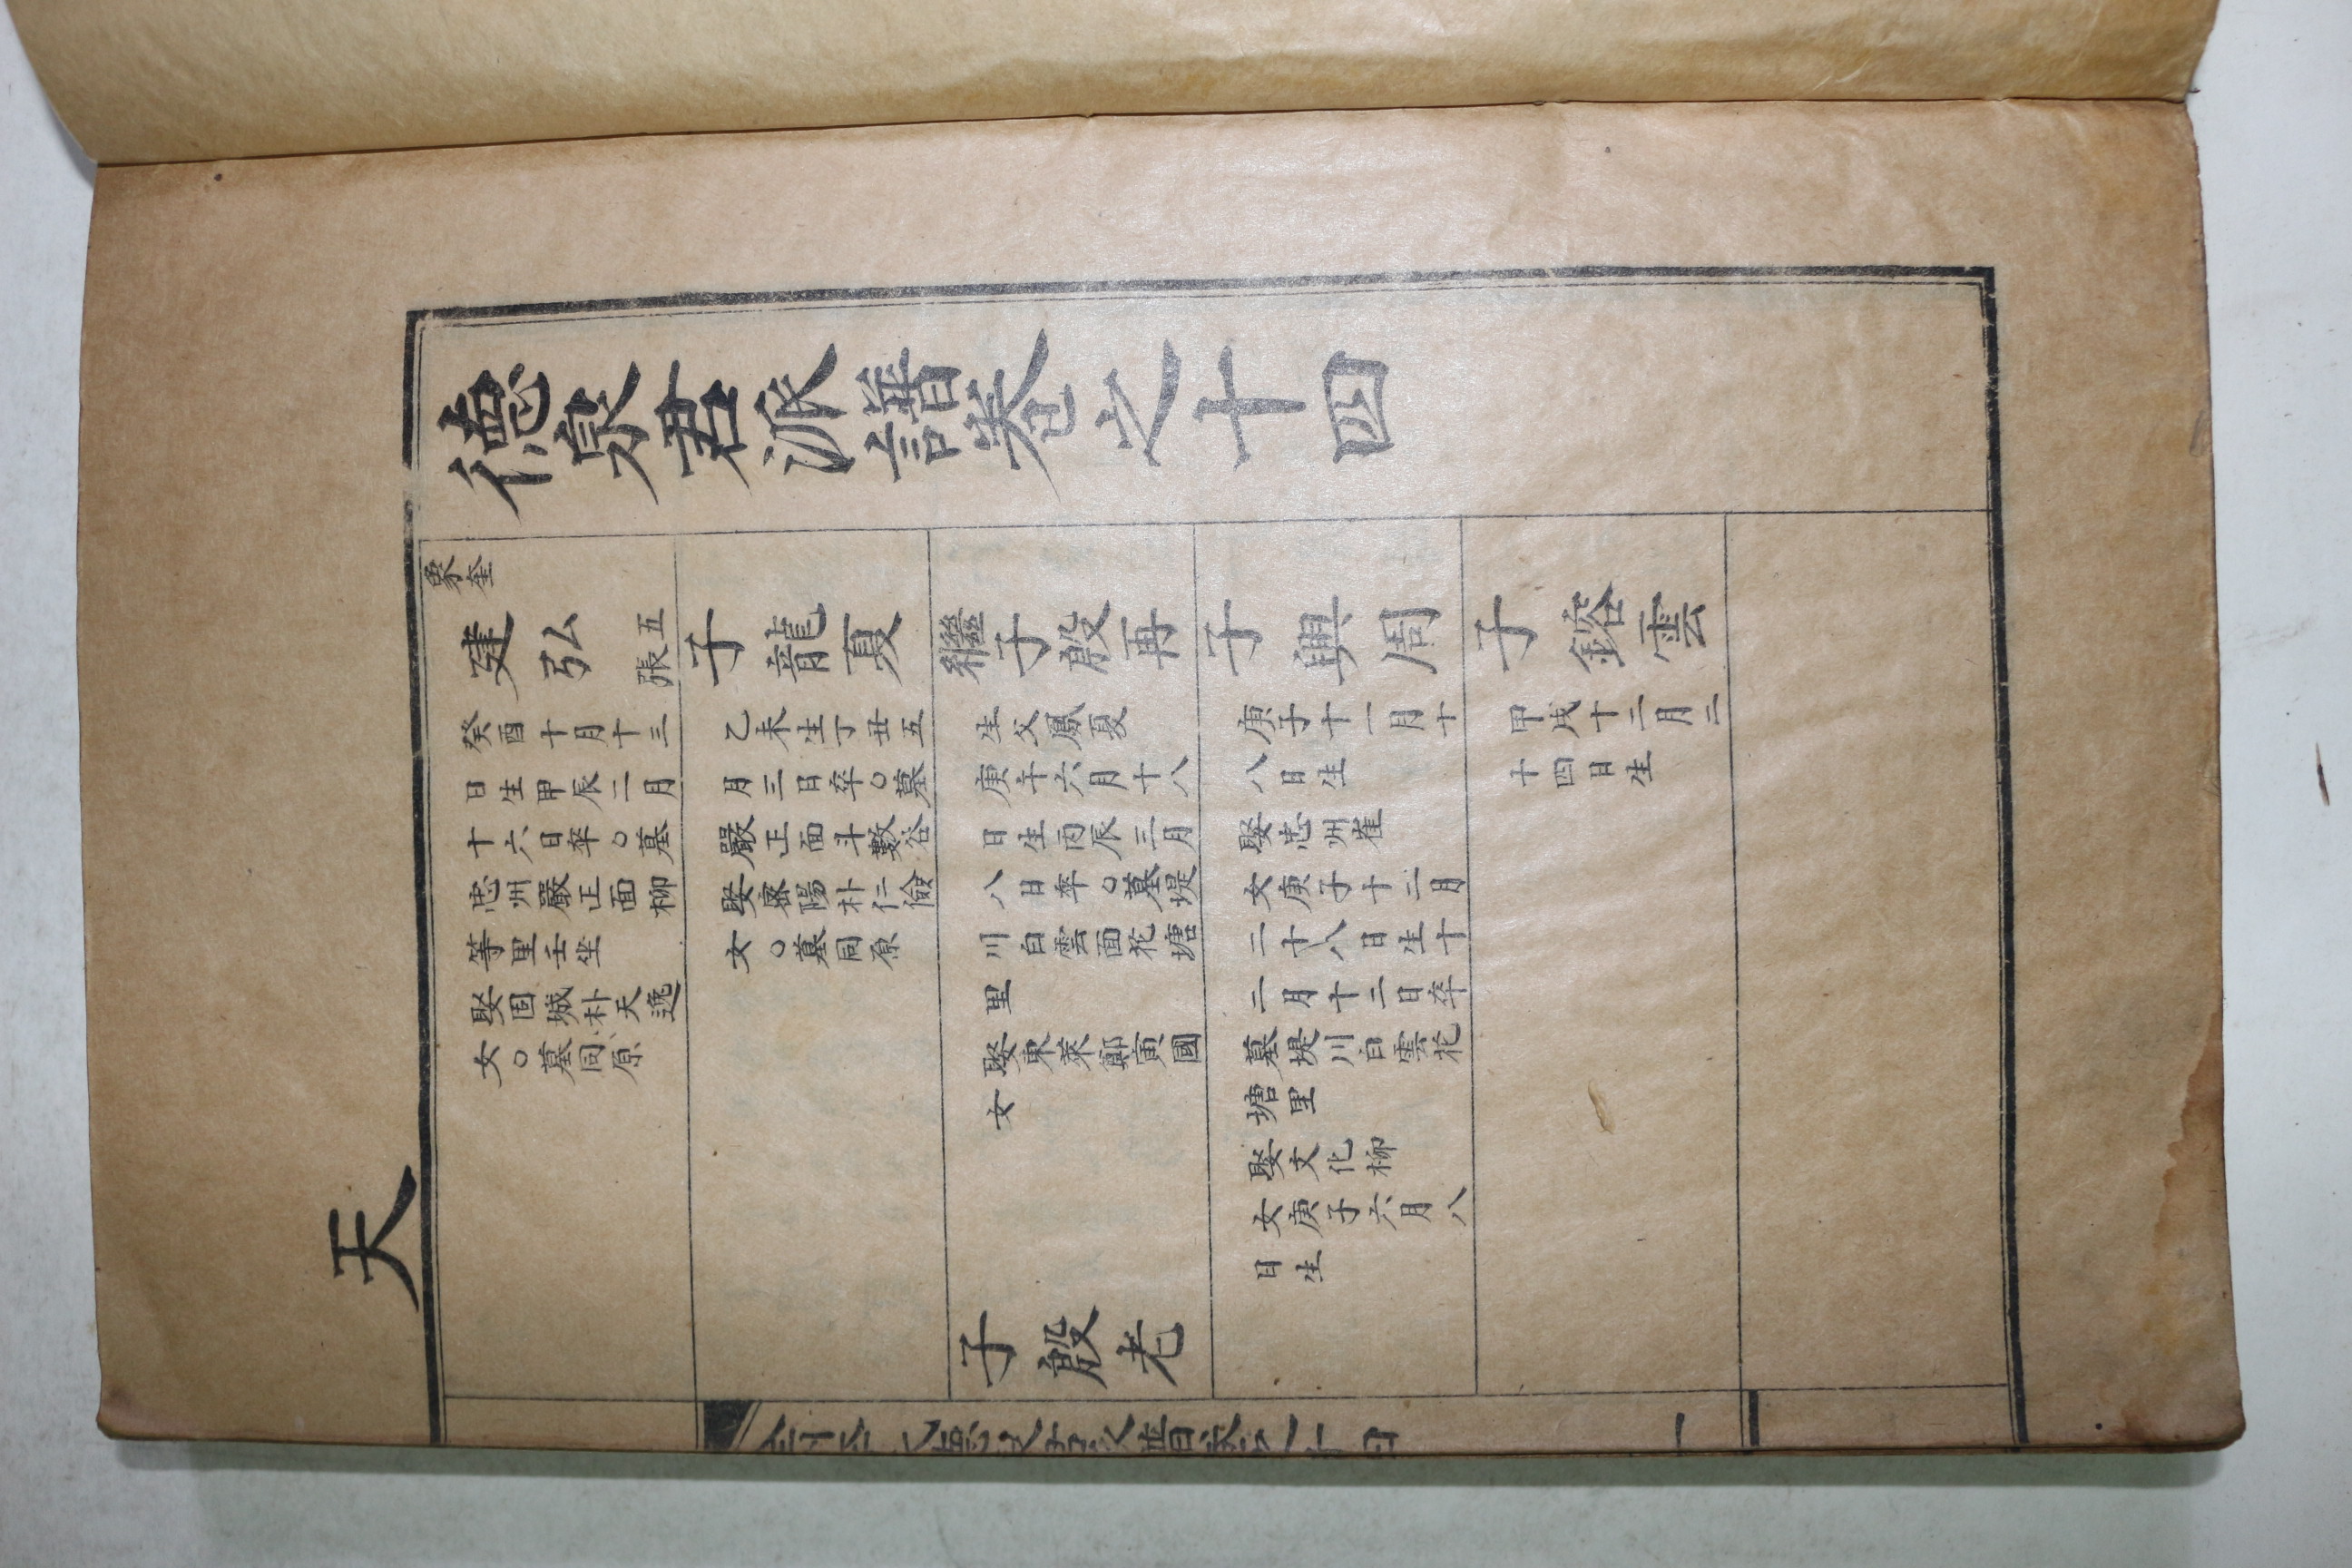 德泉君派譜卷之十四
天
象奎
建弘
五張
癸酉十月十三
日生甲辰二月
十六日卒○墓
忠州嚴正面柳
等里壬坐
娶固城朴天逸
女○墓同原
子龍夏
乙未生丁丑五
月三日卒○墓
嚴正面斗數谷
娶密陽朴仁儉
女○墓同原
繼子殷再
生父鳳夏
庚午六月十八
日生丙辰三月
八日卒○墓堤
川白雲面花塘
里
娶東萊鄭寅國
女
子殷老
子興周
庚子十一月十
八日生
娶忠州崔
女庚子十二月
二十八日生十
二月十二日卒
墓堤川白雲花
塘里
娶文化柳
女庚子六月八
日生
子鎔雲
甲戌十二月二
十四日生
一